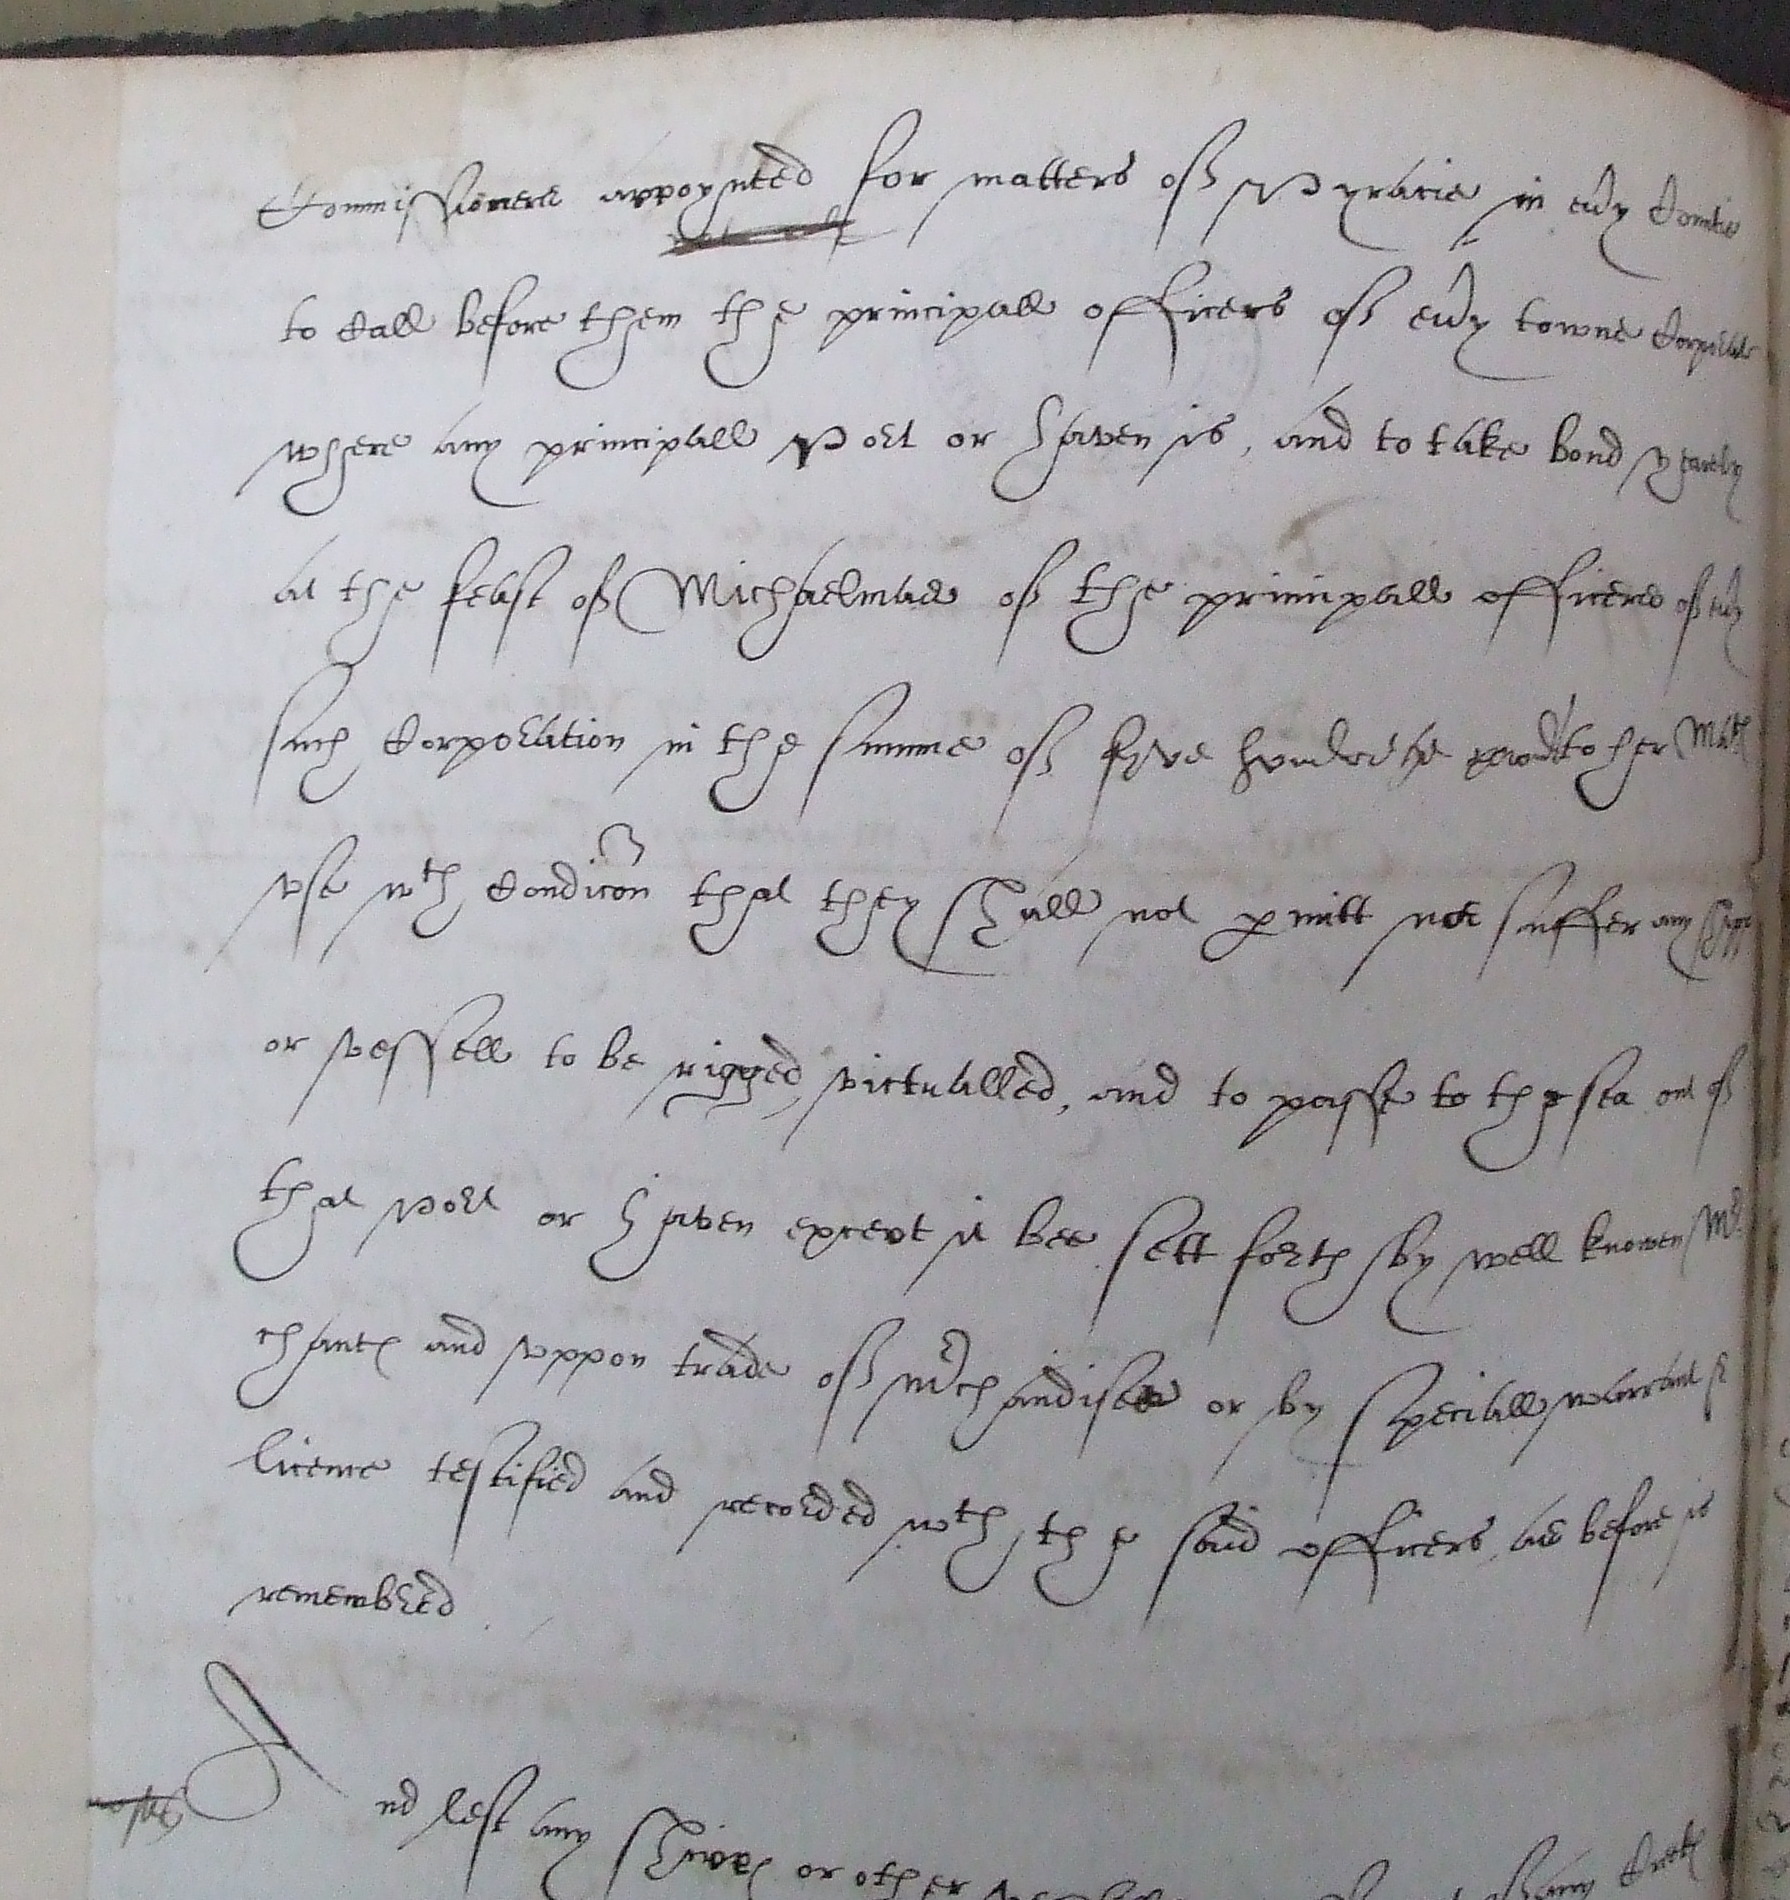 Commissioners appoynted for matters of Pyracie in euy Countie
to call before them the principall officers of euy towne Corporate
where any principall Port or haven is, and to take bond yearely
at the feast of Michaelmas of the principall officers of euy
such Corporation in the summe of fyve hundrethe to her Matꝭ
vse wth Condicon that they shall not pmitt nor suffer any shipp
or vessell to be rigged, victualled, and to passe to the sea out of
that Port or haven except it bee sett forth by well knowen Mr
chantꝭ and vppon trade of mrchandises or by speciall warrant &
licence testified and recorded wth the said officers, as before is
remembred
And lest any shippꝭ or other any Creekꝭ